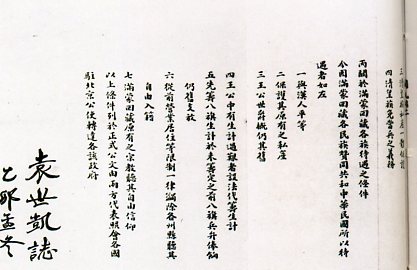 三清皇族私產一體保護
四清皇族免當兵之義務
丙關於滿蒙回藏各族待遇之條件
今因滿蒙回藏各民族贊同共和中華民國所以待
遇者如左
一與漢人平等
二保護其原有之私產
三王公世爵概仍其舊
四王公中有生計過艱者設法代籌生計
五先籌八旗生計於未籌定之前八旗兵弁俸餉
仍舊支放
六從前營業居住等限制一律蠲除各州縣聽其
自由入籍
七滿蒙回藏原有之宗教聽其自由信仰
以上條件列於正式公文由兩方代表照會各國
駐北京公使轉達各該政府
袁世凱誌
乙卯孟冬